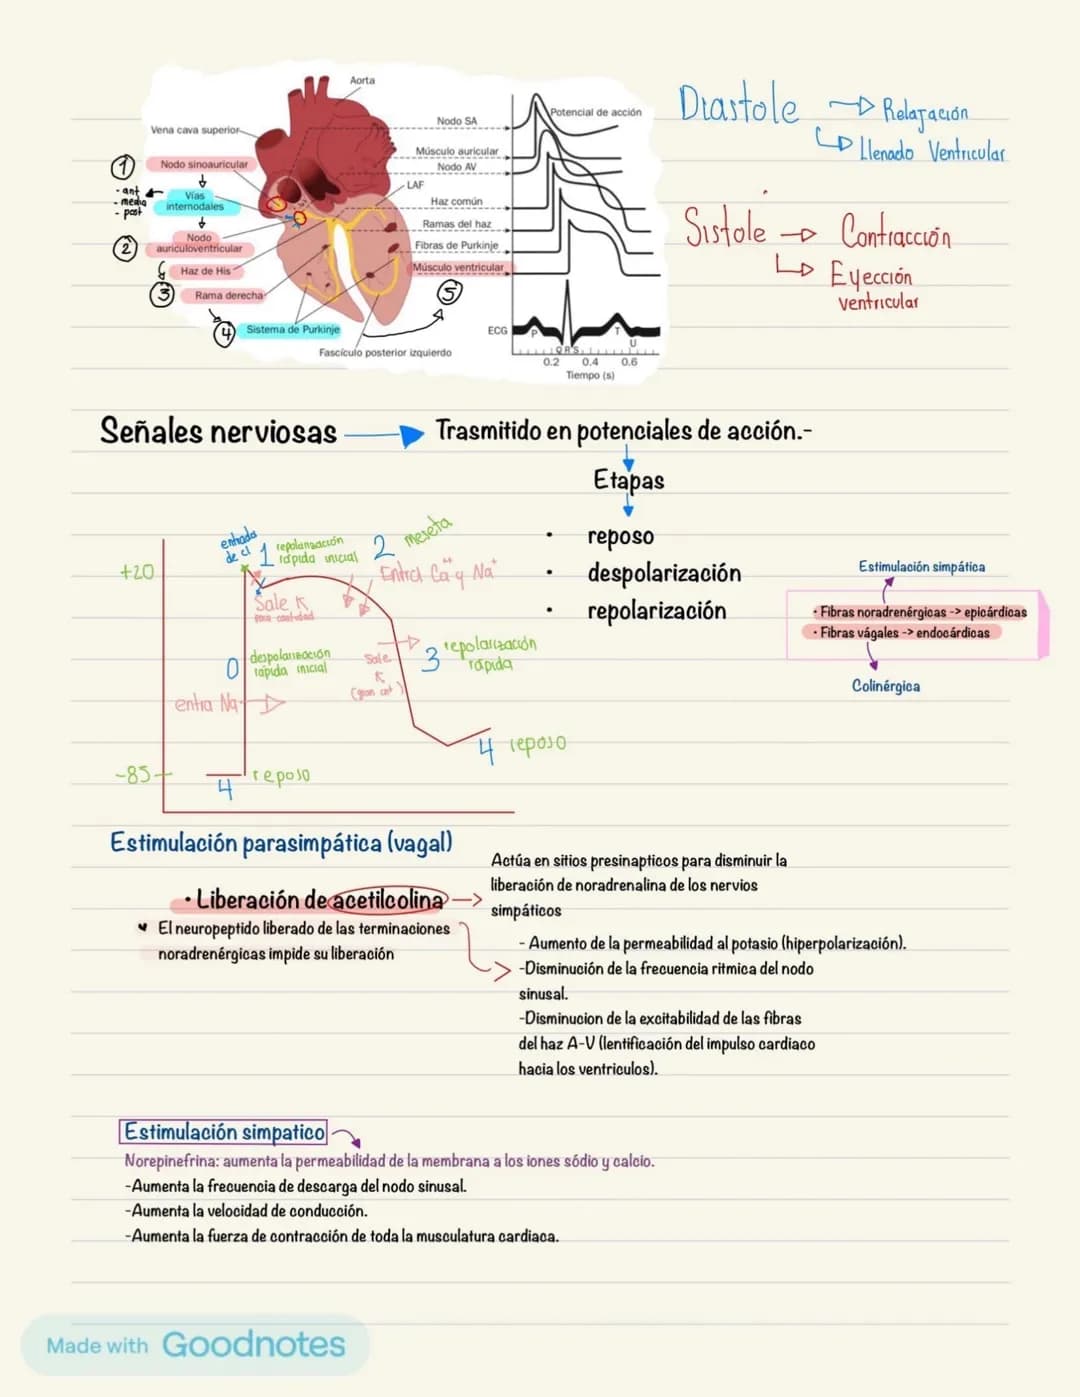 Aorta
Vena cava superior
1
Nodo sinoauricular
- ant
- media
- post
Vías
internodales
2
Nodo
auriculoventricular
Haz de His
3
Rama derecha
4
Sistema de Purkinje
Fascículo posterior izquierdo
LAF
Nodo SA
Músculo auricular
Nodo AV
Haz común
Ramas del haz
Fibras de Purkinje
Músculo ventricular
5
Potencial de acción
ECG
P
QRS
T
U
0.2 0.4 0.6
Tiempo (s)
Diastole
Relajación
Llenado Ventricular
Sistole
Contracción
Eyección
ventricular
Señales nerviosas
Trasmitido en potenciales de acción.-
Etapas
• reposo
• despolarización
• repolarización
Estimulación simpática
• Fibras noradrenérgicas -> epicárdicas
• Fibras vágales -> endocárdicas
Colinérgica
+20
-85
entrada
de cl
1 repolarización
rápida inicial
2 meseta
Entra Ca++ y Na+
Sale K
poca cantidad
0 despolarización
rápida inicial
entra Na+
Sale
K
(gran cnt)
3 repolarización
rápida
4 reposo
4 reposo
Estimulación parasimpática (vagal)
• Liberación de acetilcolina
El neuropeptido liberado de las terminaciones
noradrenérgicas impide su liberación
Actúa en sitios presinapticos para disminuir la
liberación de noradrenalina de los nervios
simpáticos
- Aumento de la permeabilidad al potasio (hiperpolarización).
-Disminución de la frecuencia ritmica del nodo
sinusal.
-Disminucion de la excitabilidad de las fibras
del haz A-V (lentificación del impulso cardiaco
hacia los ventriculos).
Estimulación simpatico
Norepinefrina: aumenta la permeabilidad de la membrana a los iones sódio y calcio.
-Aumenta la frecuencia de descarga del nodo sinusal.
-Aumenta la velocidad de conducción.
-Aumenta la fuerza de contracción de toda la musculatura cardiaca.
Made with Goodnotes